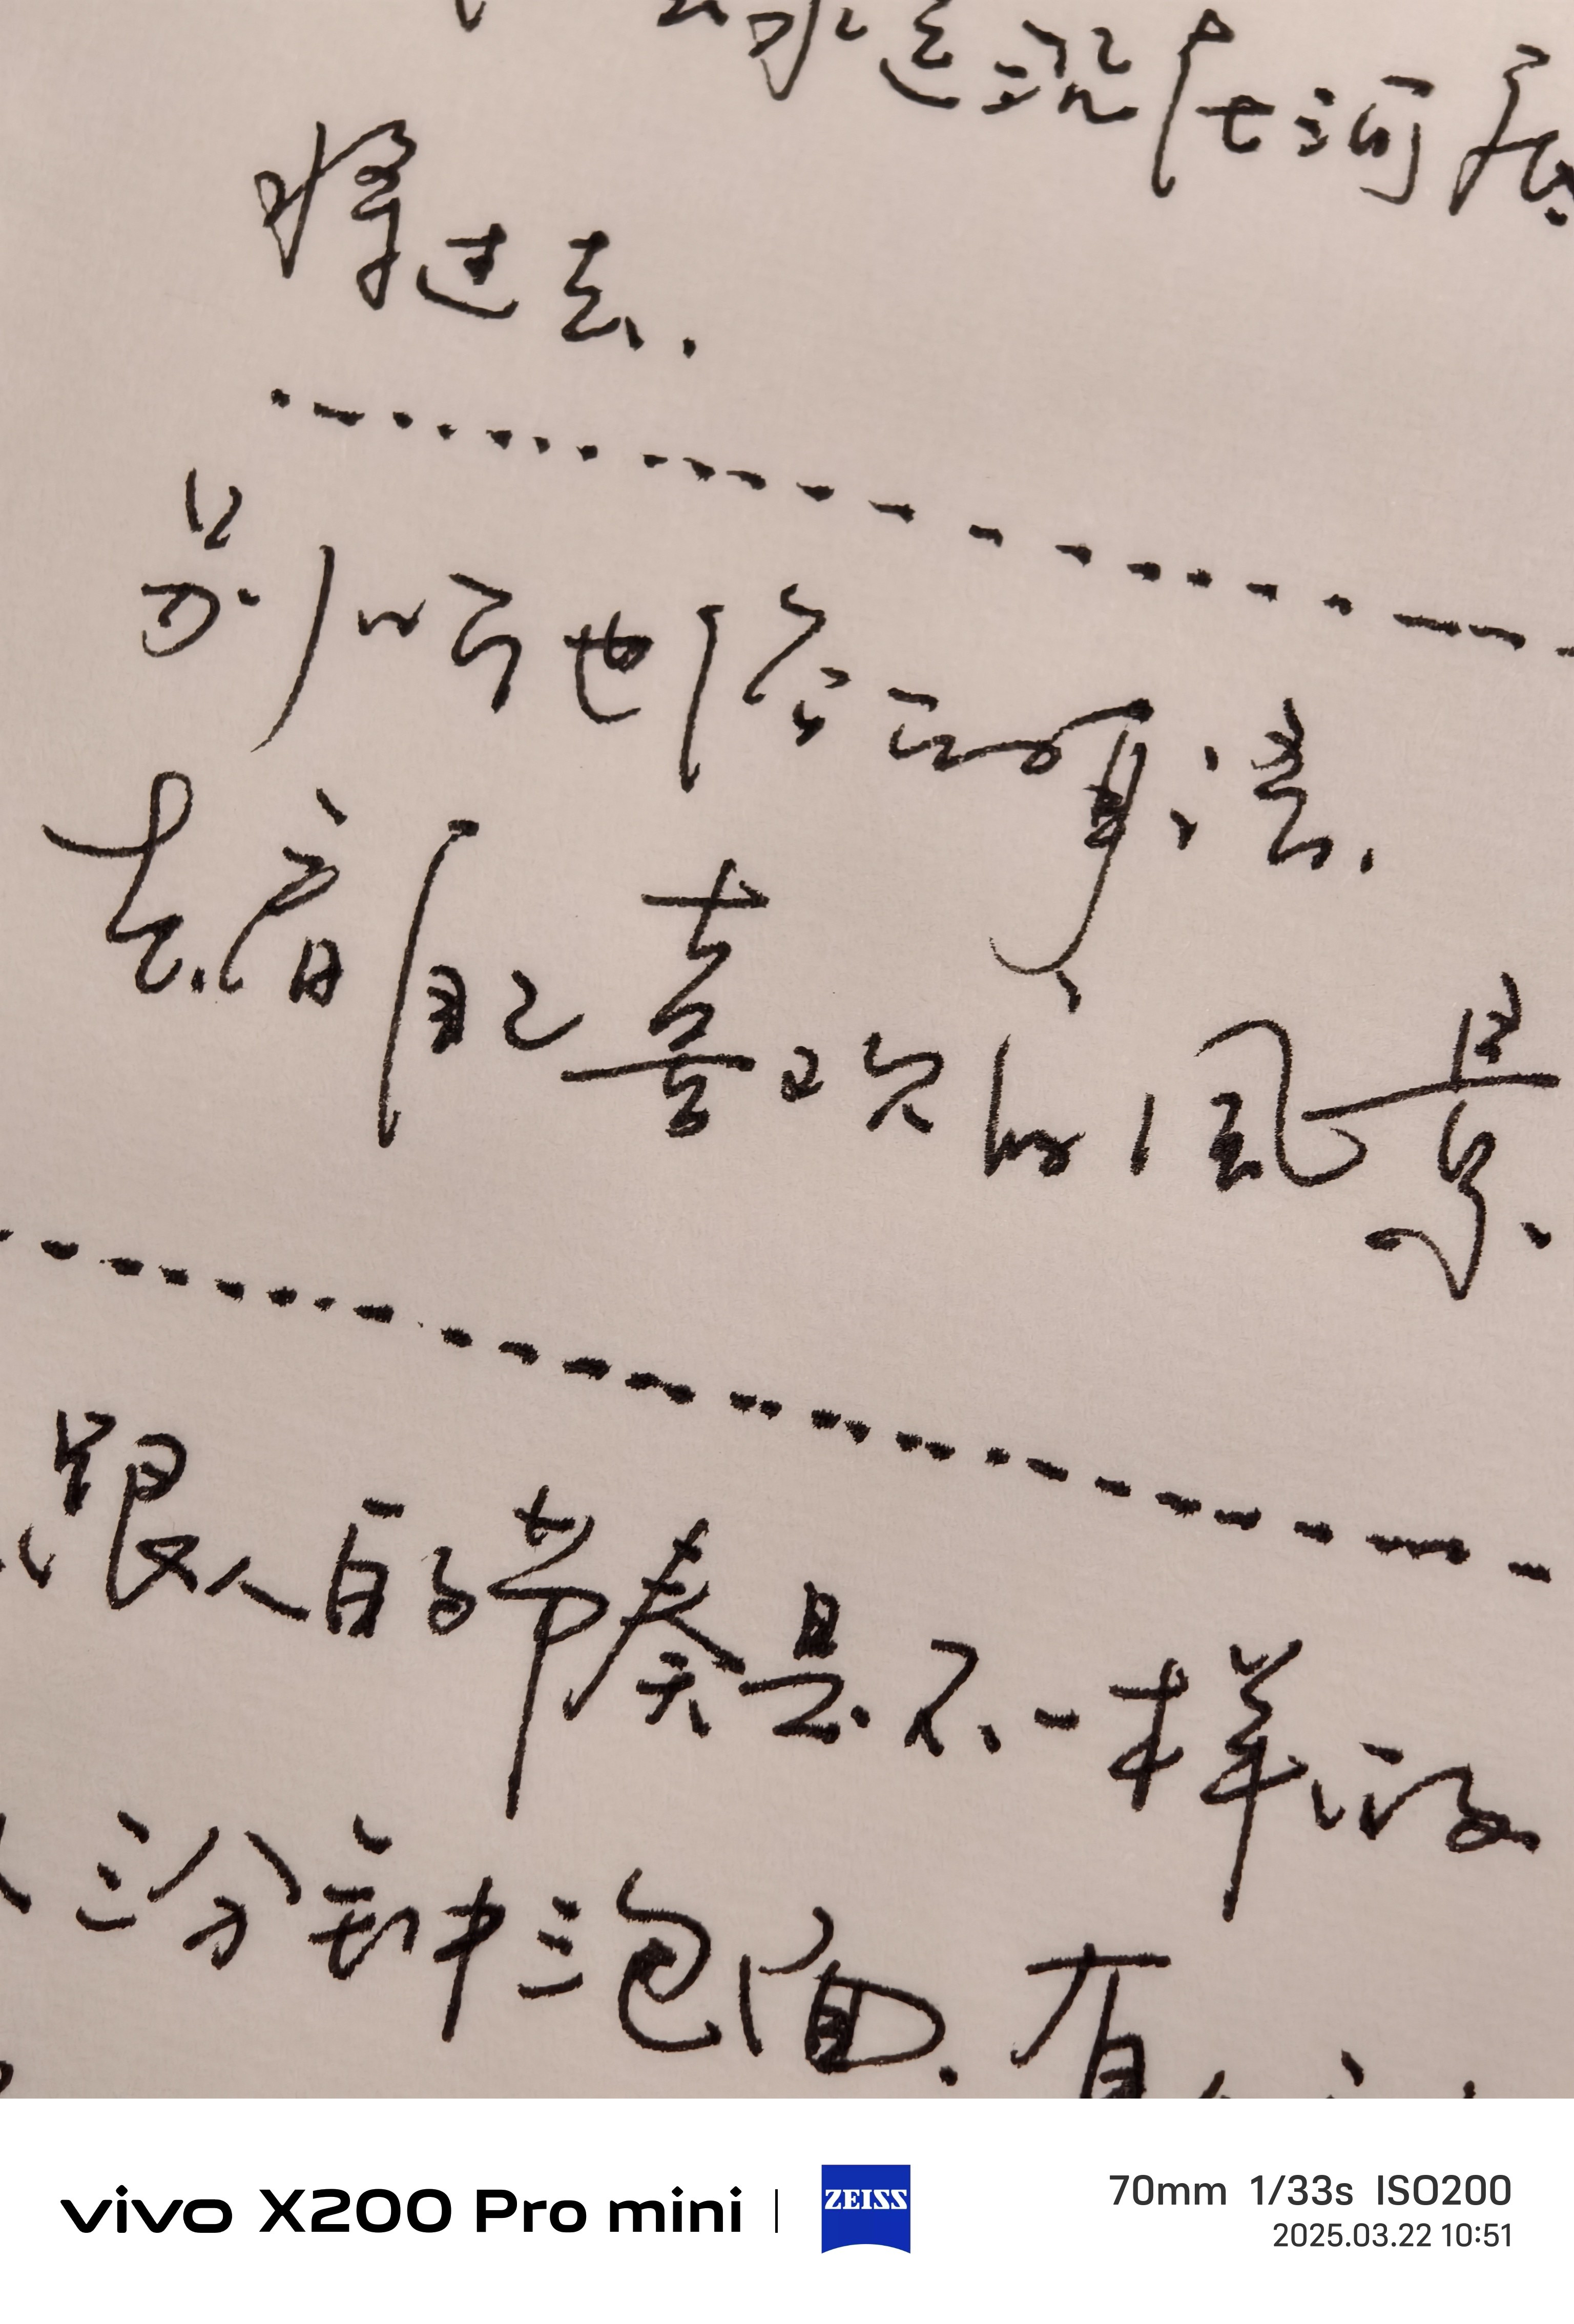 永远沉在河底
将过去.
别听世俗的耳语.
去看自己喜欢的风景.
跟人的节奏是不一样的
三分钟泡面.有
vivo X200 Pro mini | ZEISS
70mm 1/33s ISO200
2025.03.22 10:51